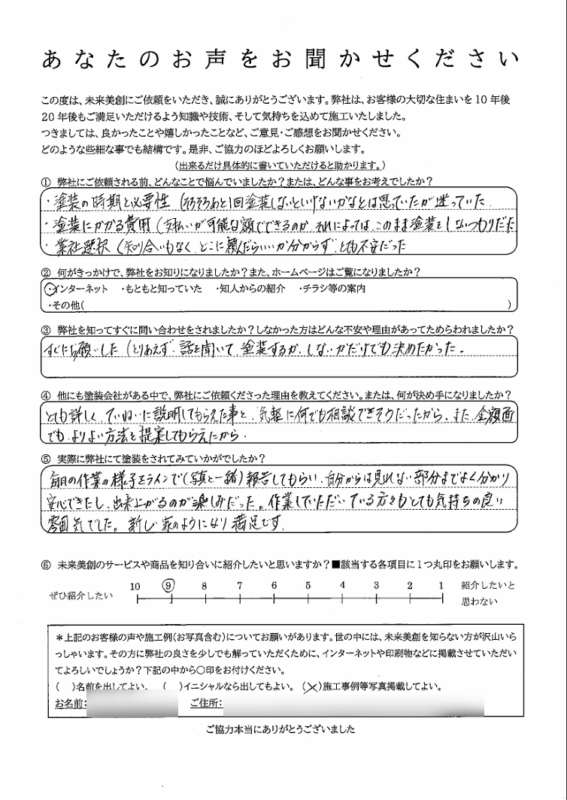 あなたのお声をお聞かせください
この度は、未来美創にご依頼をいただき、誠にありがとうございます。弊社は、お客様の大切な住まいを10年後
20年後もご満足いただけるよう知識や技術、そして気持ちを込めて施工いたしました。
つきましては、良かったことや嬉しかったことなど、ご意見・ご感想をお聞かせください。
どのような些細な事でも結構です。是非、ご協力のほどよろしくお願いします。
(出来るだけ具体的に書いていただけると助かります。)
① 弊社にご依頼される前、どんなことで悩んでいましたか?または、どんな事をお考えでしたか?
・塗装の時期と必要性 (そろそろあと1回塗装しないといけないかなとは思っていたが迷っていた
・塗装にかかる費用 (支払いが可能な額でできるのか、それによっては、このまま塗装をしないつもりだった
・業社選択 (知り合いもなく、どこに頼んだらいいか分からず、とても不安だった
② 何がきっかけで、弊社をお知りになりましたか?また、ホームページはご覧になりましたか?
・インターネット ・もともと知っていた ・知人からの紹介 ・チラシ等の案内
・その他( )
③ 弊社を知ってすぐに問い合わせをされましたか?しなかった方はどんな不安や理由があってためらわれましたか?
すぐにお願いした (とりあえず、話を聞いて、塗装するか、しないかだけでも決めたかった。
④ 他にも塗装会社がある中で、弊社にご依頼くださった理由を教えてください。または、何が決め手になりましたか?
とても詳しく、ていねいに説明してもらえた事と、気軽に何でも相談できそうだったから、また、金額面
でも、よりよい方法を提案してもらえたから。
⑤ 実際に弊社にて塗装をされてみていかがでしたか?
毎日の作業の様子をラインで(写真と一緒)報告してもらい、自分からは見れない部分までよく分かり
安心できたし、出来上がるのが楽しみだった。作業していただいている方々もとても気持ちの良い
雰囲気でした。新しい家のようになり満足です。
⑥ 未来美創のサービスや商品を知り合いに紹介したいと思いますか?■該当する各項目に1つ丸印をお願いします。
ぜひ紹介したい 10 9 8 7 6 5 4 3 2 1 紹介したいと
思わない
*上記のお客様の声や施工例(お写真含む)についてお願いがあります。世の中には、未来美創を知らない方が沢山いら
っしゃいます。その方に弊社の良さを少しでも解っていただくために、インターネットや印刷物などに掲載させていただい
てよろしいでしょうか?下記の中から○印をお付けください。
( )名前を出してよい。 ( )イニシャルなら出してもよい。 (×)施工事例等写真掲載してよい。
お名前: ご住所:
ご協力本当にありがとうございました